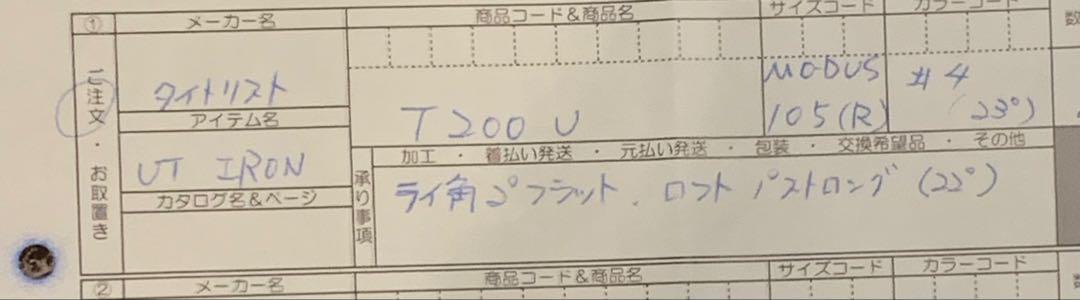 ① メーカー名 商品コード&商品名 サイズコード カラーコード 数
ご注文・お取置き
タイトリスト T200 U MODUS 105(R) #4 (23°)
アイテム名
UT IRON
カタログ名&ページ
承り事項
加工 ・ 着払い発送 ・ 元払い発送 ・ 包装 ・ 交換希望品 ・ その他
ライ角2°フラット、ロフト1°ストロング(22°)
② メーカー名 商品コード&商品名 サイズコード カラーコード 数